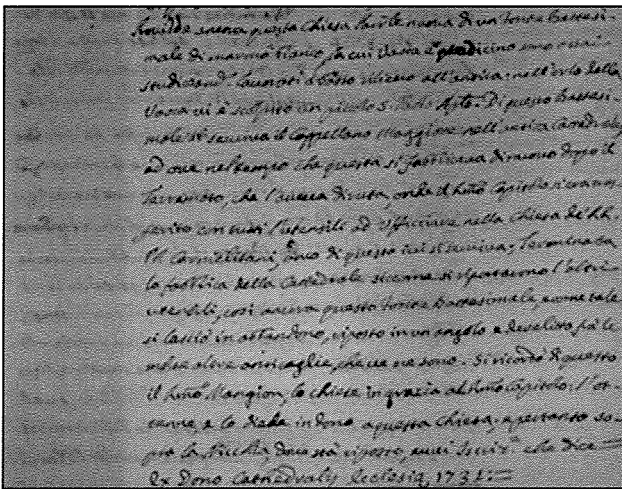 questa Chiesa l'arte nuova di un fonte battesi-
male di marmo bianco, la cui vasca e piedicino sono assai
lavorati a basso rilievo all'antica: nell'orlo della
Vasca vi è scolpito un piccolo S. Paolo Apto. Di questo battesi-
male si serviva il cappellano Maggiore nell'antica Catedrale
ad ove nel tempo che questa si fabbricava di nuovo dopo il
Terremoto, che l'aveva diruta, onde il Capitolo si era
con tutti l'utensili ad officiare nella Chiesa de RR.
PP. Carmelitani, di questo ivi si serviva; Terminata
la fabbrica della Catedrale siccome si riportarono l'altri
utensili, così ancora questo fonte battesimale, come tale
si lasciò in abbandono, riposto in un angolo e desolato fra le
molte altre anticaglie, che ve ne sono. Si ricordò di questo
il Mangion, lo chiese in grazia al Capitolo; l'ot-
tenne, e lo diede in dono a questa Chiesa; e pertanto so-
pra la Nicchia dove stà riposto, che dice
Ex Dono Cathedralis Ecclesiæ, 1732